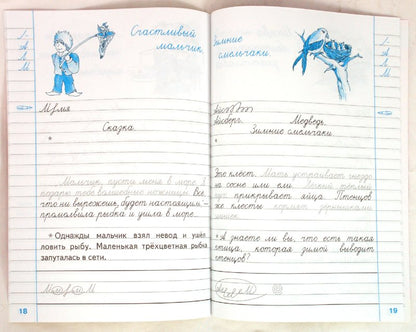 Счастливый
мальчик.
М/мля
Сказка.
Мальчик, пусти меня в море. Я
подарю тебе волшебные ножницы. Всё,
что ни вырежешь, будет настоящим –
промолвила рыбка и ушла в море.
* Однажды мальчик взял невод и ушёл
ловить рыбу. Маленькая трёхцветная рыбка
запуталась в сети.
18
Зимние
смельчаки.
Медведь.
Зимние смельчаки.
Это клёст. Мать устраивает гнездо
на сосне или ели. Тёплый
пух прикрывает яйца. Птенцов
же клесты кормят зёрнышками
* А знаете ли вы, что есть такая
птица, которая зимой выводит
птенцов?
19